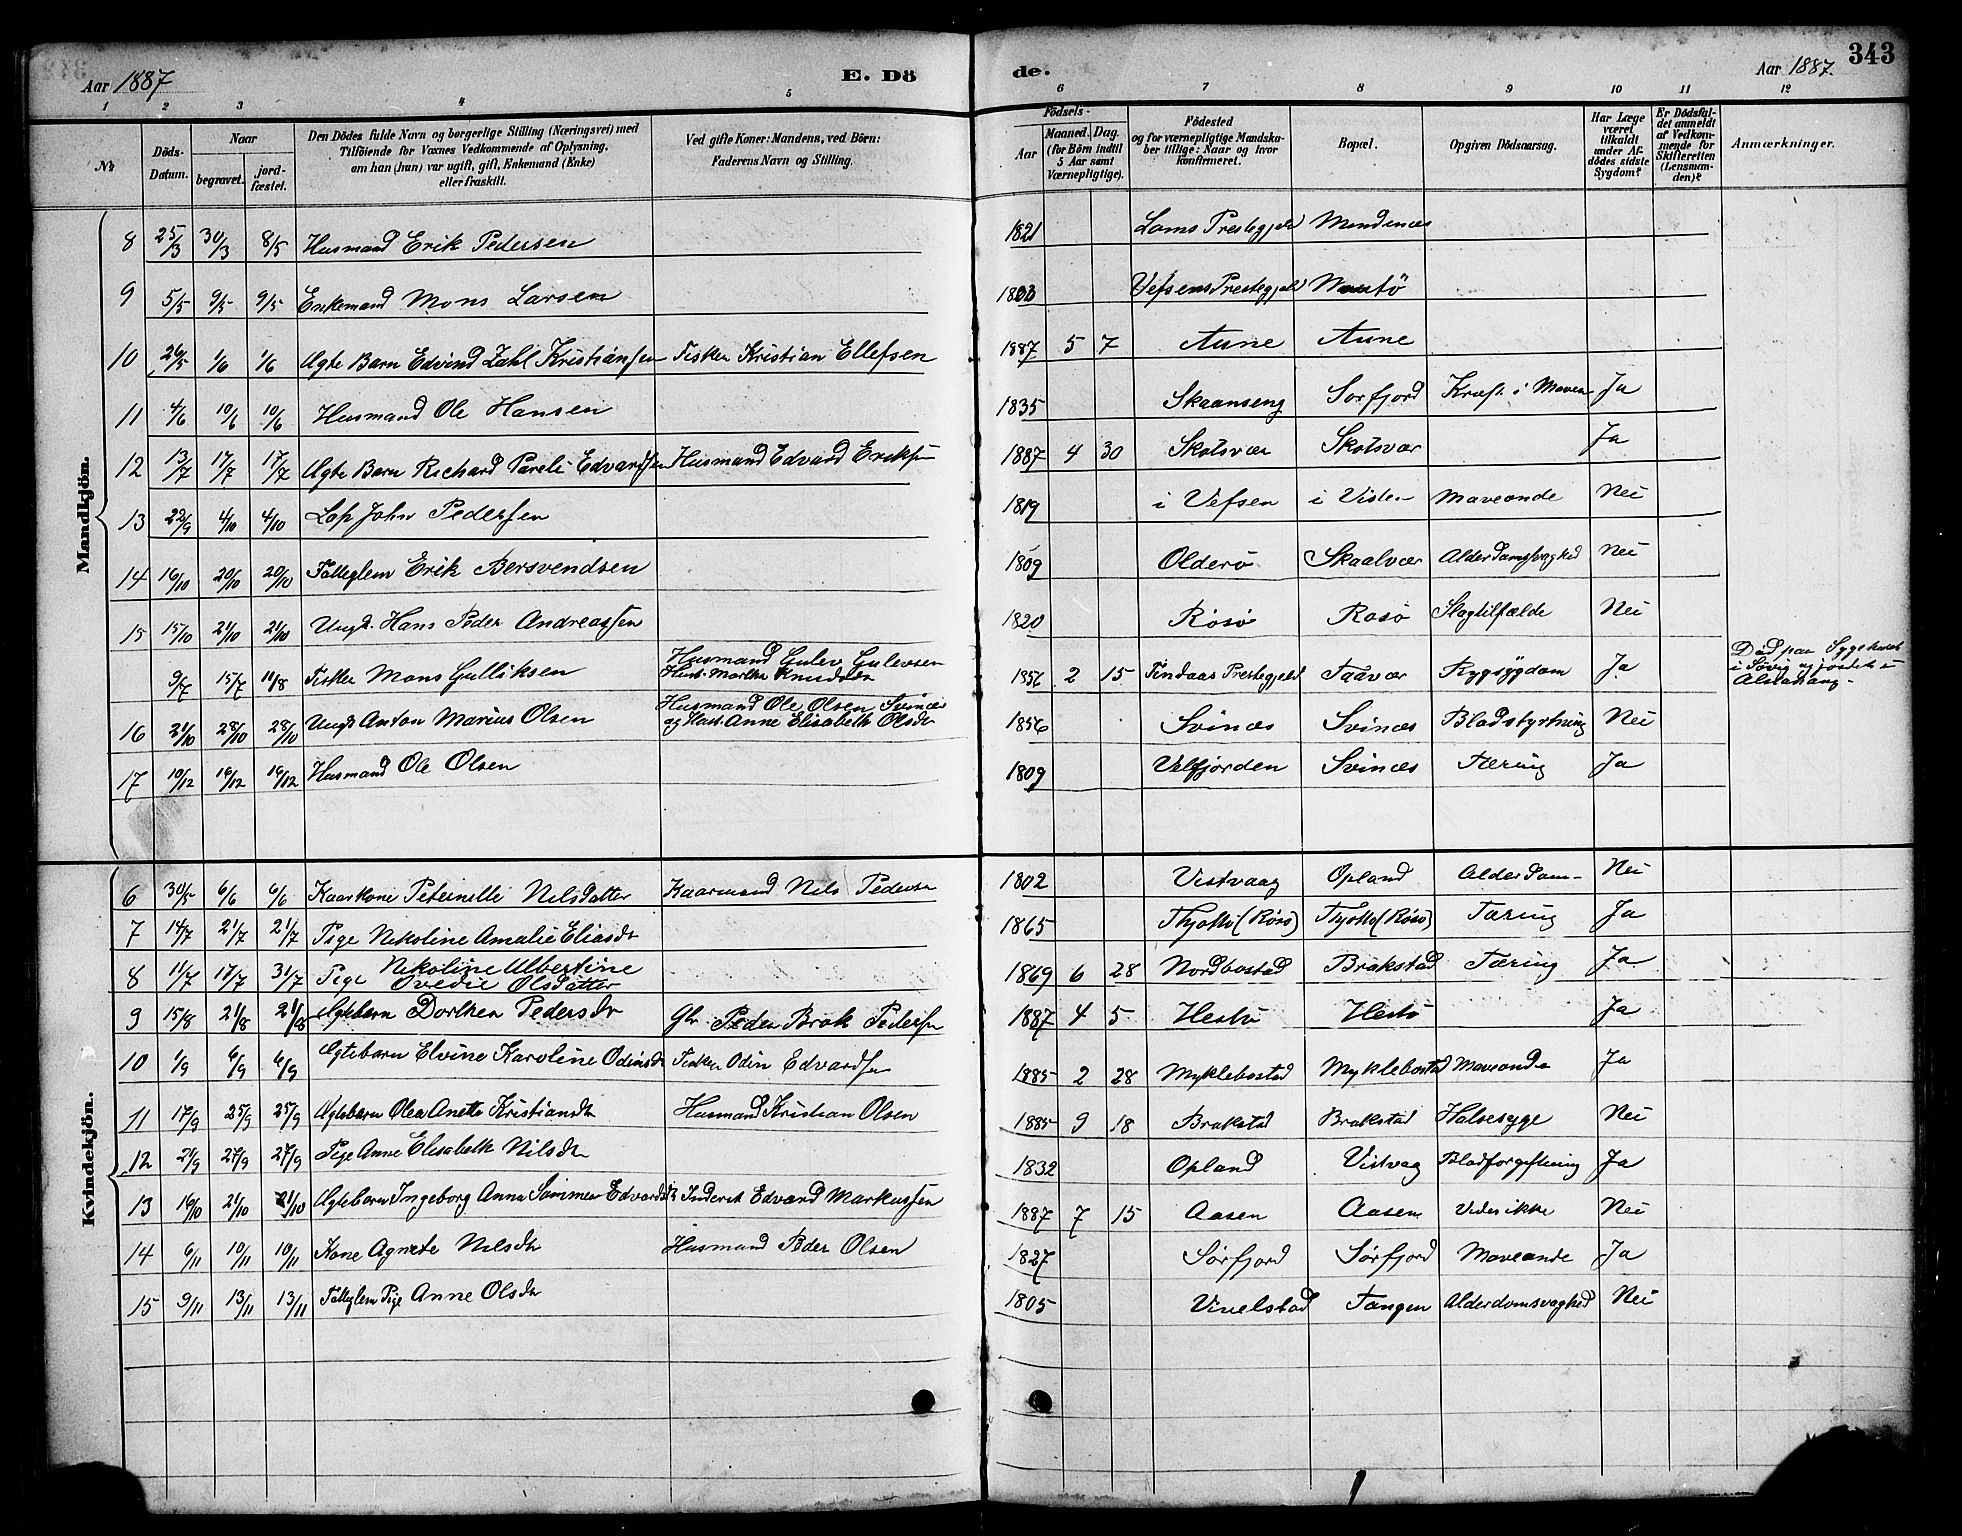 Aar 1887 E. Dö de. Aar 1887. 343
1 2 3 4 5 6 7 8 9 10 11 12
№ Döds-Datum. Naar begravet. jordfæstet. Den Dödes fulde Navn og borgerlige Stilling (Næringsvei) med Tilföiende for Voxnes Vedkommende af Oplysning, om han (hun) var ugift, gift, Enkemand (Enke) eller fraskilt. Ved gifte Koner: Mandens, ved Börn: Faderens Navn og Stilling. Födsels- Aar Maaned. Dag. (for Börn indtil 5 Aar samt Værnepligtige). Födested og for værnepligtige Mandskaber tillige: Naar og hvor konfirmeret. Bopæl. Opgiven Dödsaarsag. Har Læge været tilkaldt under Afdödes sidste Sygdom? Er Dödsfaldet anmeldt af Vedkommende for Skifteretten (Lensmanden)? Anmærkninger.
Mandkjön.
8 25/3 30/3 8/5 Husmand Erik Pedersen 1821 Loms Prestegjeld Mendenæs
9 5/5 9/5 9/5 Enkemand Mons Larsen Vefsens Prestegjeld
10 26/5 1/6 1/6 Ægte Barn Edvind Zahl Kristiansen Fisker Kristian Ellefsen 1887 5 7 Aune Aune
11 4/6 10/6 10/6 Husmand Ole Hansen 1835 Skaanseng Sørfjord Kræft i Maven Ja
12 13/7 17/7 17/7 Ægte Barn Richard Pareli Edvardsen Husmand Edvard Eriksen 1887 4 30 Skotsvær Skotsvær Ja
13 22/9 4/10 4/10 Lap John Pedersen 1819 i Vefsen i Visten Maveonde Nei
14 16/10 20/10 20/10 Fattiglem Erik Bersvendsen 1809 Olderø Skaalvær Alderdomsvaghed Nei
15 15/10 21/10 21/10 Ungk. Hans Peder Andreassen 1820 Røsø Rosø Slagtilfælde Nei
9/7 15/7 10/8 Fisker Mons Gulliksen Husmand Gulev Gulevsen Hust. Marthe Knudsdtr 1856 2 15 Findaas Prestegjeld Taavær Rygsygdom Ja Død paa Sygehuset i Søvig og jordet i Alstahaug
16 21/10 28/10 28/10 Ungk Anton Marius Olsen Husmand Ole Olsen Svinæs og Hust. Anne Elisabeth Olsdtr 1856 Svinæs Svinæs Blodstyrtning Nei
17 10/12 16/12 16/12 Husmand Ole Olsen 1809 Velfjorden Svinæs Tæring Ja
Kvindekjön.
6 30/5 6/6 6/6 Kaarkone Peternelle Nilsdatter Kaarmand Nils Pedersen 1802 Vistvaag Opland Alderdom- Nei
7 14/7 21/7 21/7 Pige Nikoline Amalie Eliasdtr 1865 Thjøtta (Røsø) Thjøtta (Røsø) Tæring Ja
8 11/7 17/7 31/7 Pige Nikoline Albertine Ovedie Olsdatter 1869 6 28 Nordbostad Brakstad Tæring Ja
9 15/8 21/8 21/8 Ægtebarn Dorthea Pedersdtr Gbr Peder Brok Pedersen 1887 4 5 Hestø Hestø Ja
10 1/9 6/9 6/9 Ægtebarn Elvine Karoline Odinsdtr Fisker Odin Edvardsen 1885 2 28 Myklebostad Myklebostad Maveonde Ja
11 17/9 25/9 25/9 Ægtebarn Olea Anette Kristiandtr Husmand Kristian Olsen 1885 9 18 Brakstad Brakstad Halsesyge Nei
12 21/9 27/9 27/9 Pige Anne Elisabeth Nilsdtr 1832 Opland Vistvag Blodforgiftning Ja
13 16/10 21/10 21/10 Ægtebarn Ingeborg Anne Edvardsdtr Inderst Edvard Markussen 1887 7 15 Aasen Aasen Vides ikke Nei
14 6/11 10/11 10/11 Kone Agnete Nilsdtr Husmand Peder Olsen 1827 Sørfjord Sørfjord Maveonde Ja
15 9/11 13/11 13/11 Fattiglem Pige Anne Olsdtr 1805 Vivelstad Tangen Alderdomsvaghed Nei